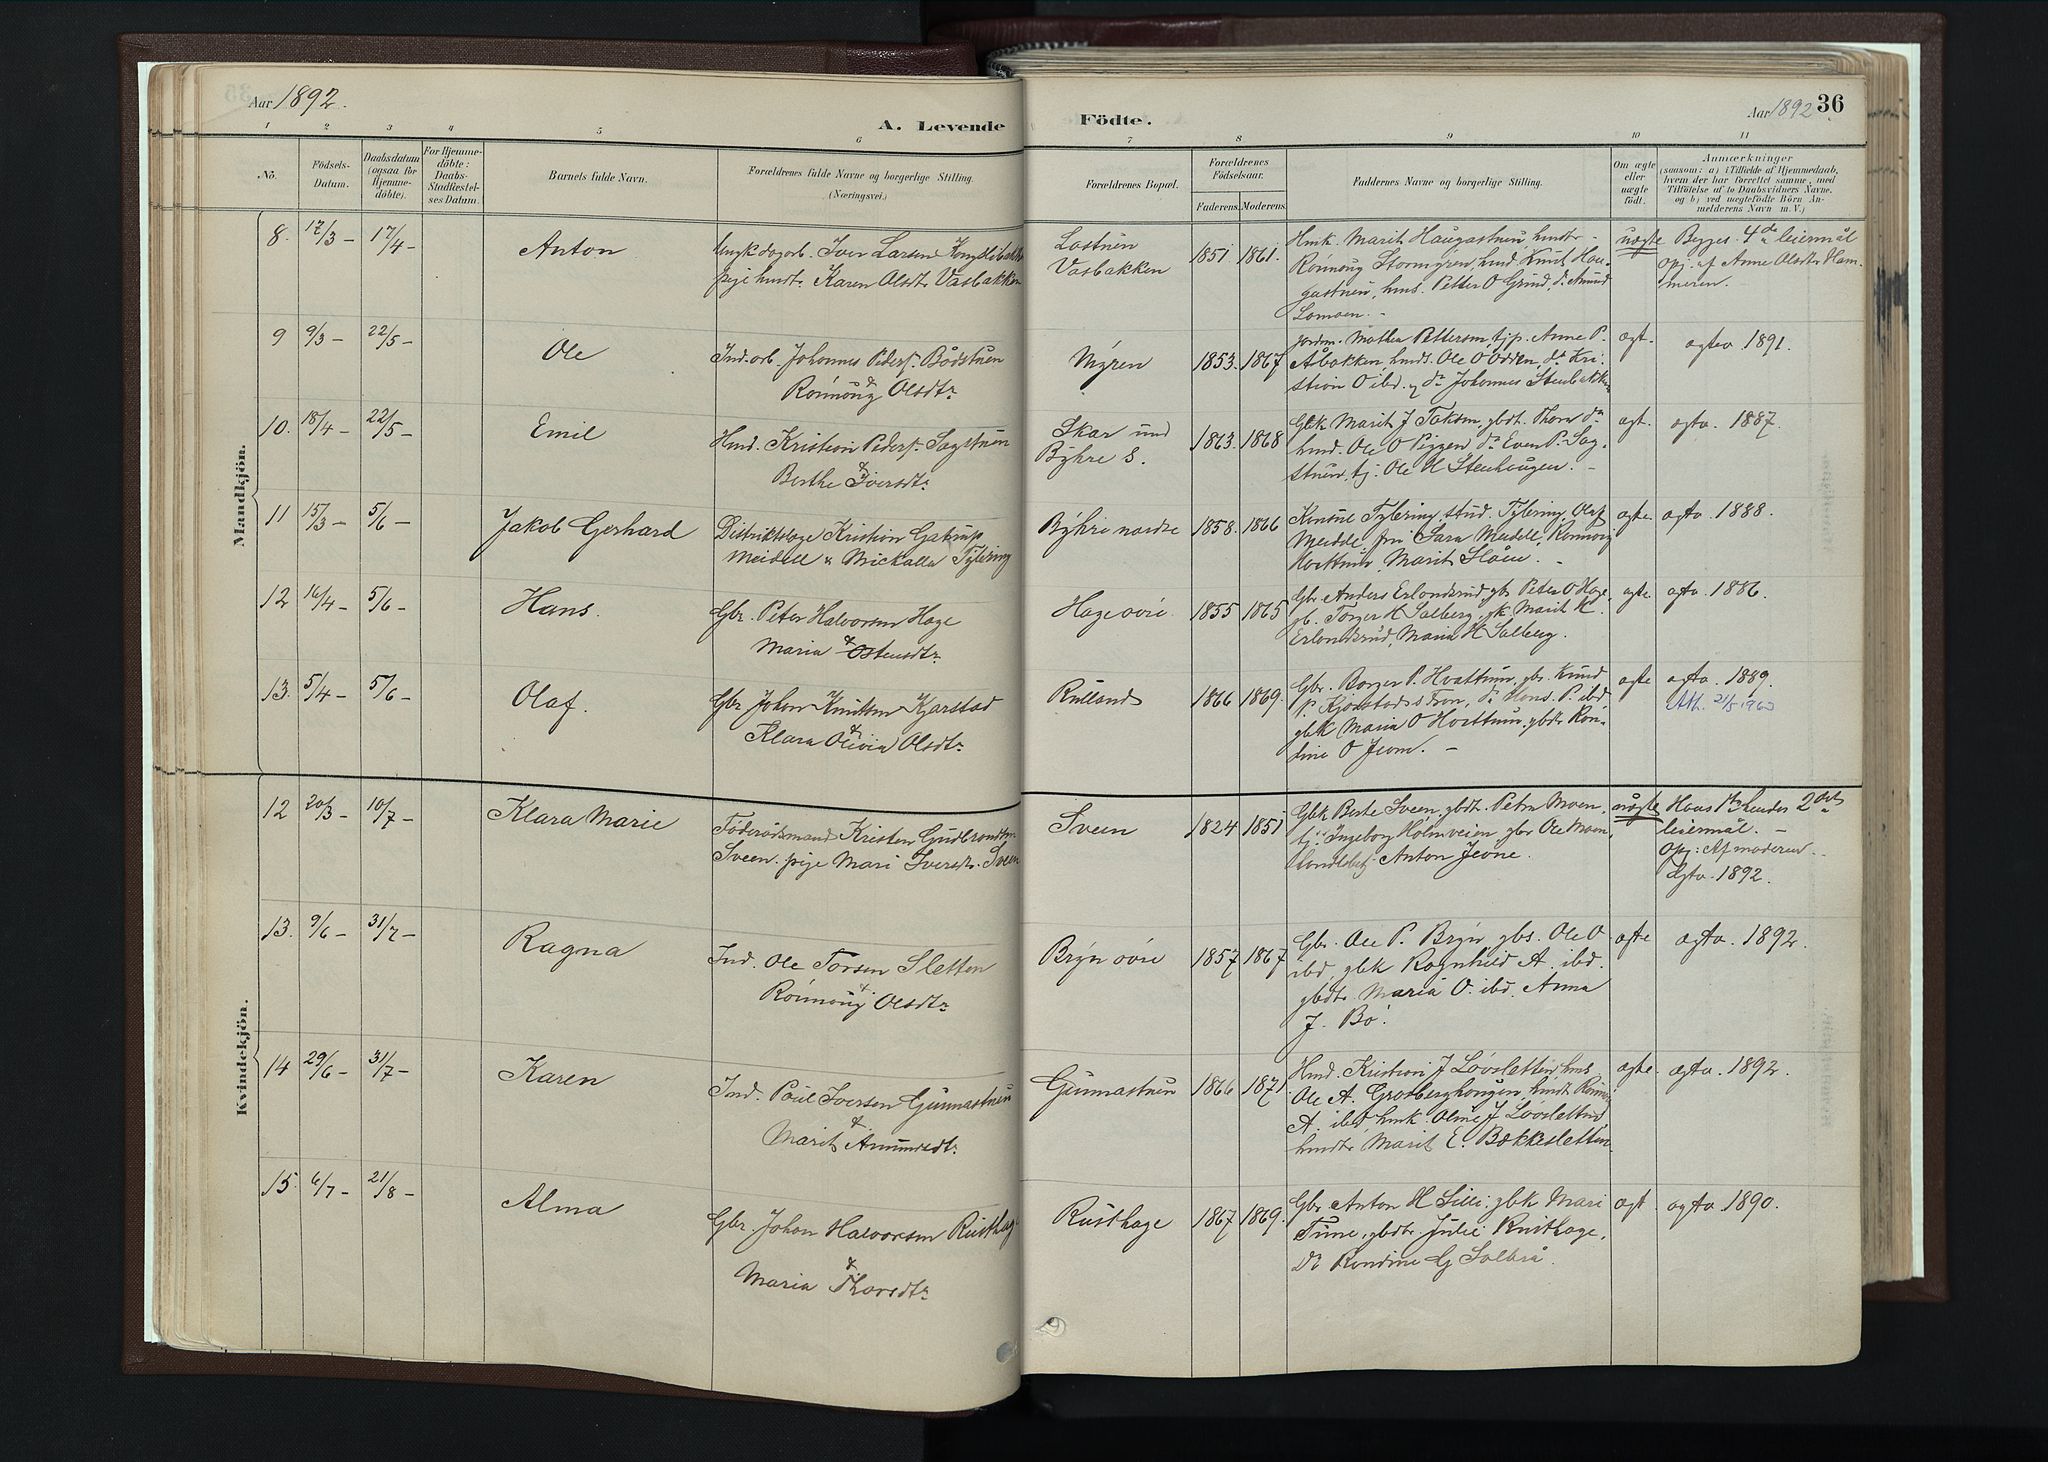 Aar 1892.
A. Levende
Födte.
Aar 1892
36
1 2 3 4 5 6 7 8 9 10 11
No.
Födsels-Datum.
Daabsdatum (ogsaa for Hjemme-döbte).
For Hjemme-döbte: Daabs-Stadfæstel-ses Datum.
Barnets fulde Navn.
Forældrenes fulde Navne og borgerlige Stilling.
(Næringsvei.)
Forældrenes Bopæl.
Forældrenes Födselsaar.
Faderens. Moderens.
Faddernes Navne og borgerlige Stilling.
Om ægte eller uægte födt.
Anmærkninger
(saasom: a) i Tilfælde af Hjemmedaab,
hvem der har forrettet samme, med
Tilföielse af to Daabsvidners Navne,
og b) ved uægtefödte Börn An-
melderens Navn m. V.)
Mandkjön.
8. 17/3 – 17/4 – Anton
Ungk dagarb. Iver Larsen
pige hmdt. Karen Olsdtr Vasbakken
Lostuen
Vasbakken
1851 1861.
Hmk. Marit Haugastuen, hmdtr
Rönnoug Stormyren, hmd. Knut Hau-
gastuen, hms. Petter O Grind, do Amund
Lomoen. –
uægte
Begges 4de leiermål
Opj. af Anne Olsdtr Ham-
meren.
9 9/3 – 22/5 – Ole
Ind. arb. Johannes Peders. Bådstuen
&
Rönnoug Olsdtr
Myren
1853. 1867
Jordm. Mathea Pettersen, tjp. Anne P.
Åbakken, hmds. Ole O Odden, do Kri-
stian O ibd. do Johannes Stenbakken
ægt.
ægtev. 1891.
10. 18/4 – 22/5 – Emil
Hmd. Kristian Peders. Sagstuen
&
Berthe Iversdtr
Skar und
Byhre s.
1863. 1868
Gbk Marit J Taksen, gbdt. Thora do
hmd. Ole O Piggen do Even P. Sag-
stuen, tj. Ole H Stenhaugen. –
ægt.
ægtv. 1887.
11 15/3 – 5/6 – Jakob Gerhard
Distriktslæge Kristian
Meidell & Mickalla Fylering
Byhre nordre
1858. 1866
Konsul Fylering, stud. Fylering, Olaf
Meidell, fru Sara Meidell, Rönnoug
Hvattum, Marit Slåen. –
ægte.
ægtv. 1888.
12 16/4 – 5/6 – Hans.
Gbr. Peter Halvorsen Hage
&
Maria Ostensdtr
Hage övre.
1855 1865
Gbr Anders Erlandsrud gbs Peter O Hage
gb. Torger H Salberg, gk. Marit K
Erlandsrud, Maria H Salberg.
ægte.
ægtv. 1886.
13. 5/4 – 5/6 – Olaf.
Gbr Johan Knutsen Kjorstad
&
Klara Olivia Olsdtr
Rulland
1866 1869.
Gbr. Borger P. Hvattum, gbs. Knud
P Kjorstad s Fron, do Hans P. ibd
gbk Maria O Hvattum, gbdtr Ron-
dine O Jeom. –
ægte
ægtv. 1889.
Att. 21/5 1963
Kvindekjön.
12 20/3 – 10/7 – Klara Marie
Föderådsmand Kristen Gudbrandsen
Sveen. pige Mari Iversdtr. Sveen
Sveen
1824 1851
Gbk Berte Sveen, gbdt. Petra Moen,
tj. Ingeborg Holmveien, gbr Ole Moen,
Anton Jevne.
uægte
Hans 1ste hendes 2det
leiermål. –
Opj: Af moderen.
Ægtv. 1892.
13. 9/6 – 31/7 – Ragna
Ind. Ole Torsen Sletten
&
Rönnoug Olsdtr
Bryn övre
1857 1867
Gbr. Ole P. Bryn gbs. Ole O
ibd, gbk Ragnhild A. ibd.
gbdtr Maria O. ibd. Anna
J. Bö.
ægte
ægtv. 1892.
14 29/6 – 31/7 – Karen
Ind. Poul Iversen Gunnastuen
&
Marit Amundsdtr
Gunnastuen
1866 1871.
Hmd. Kristian J Lövsletten, hms
Ole A. Grosberghaugen, hmdt Rönnou
A. ibd hmk. Oline J Lövsletten
hmdtr Marit E. Bækkesletten.
ægte.
ægtv. 1892.
15. 6/7 – 21/8 – Alma
Gbr. Johan Halvorsen Rusthag
&
Maria Thorsdtr
Rusthage
1867 1869.
Gbr Anton H Lilli, gbk Mari
Tune, gbdtr Julie Rusthage,
Do Rondine G Solbrå.
ægt
ægtv 1890.